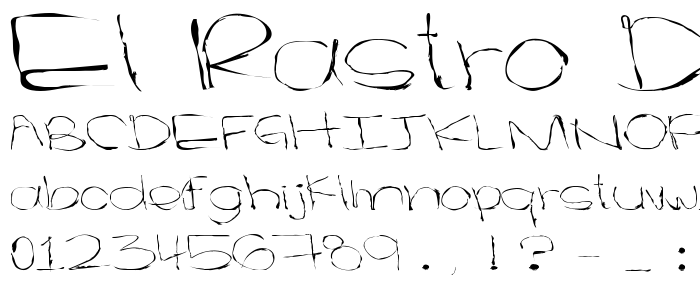 El Rastro D
ABCDEFGHIJKLMNOP
abcdefghijklmnopqrstuvw
0123456789.,!?-_: